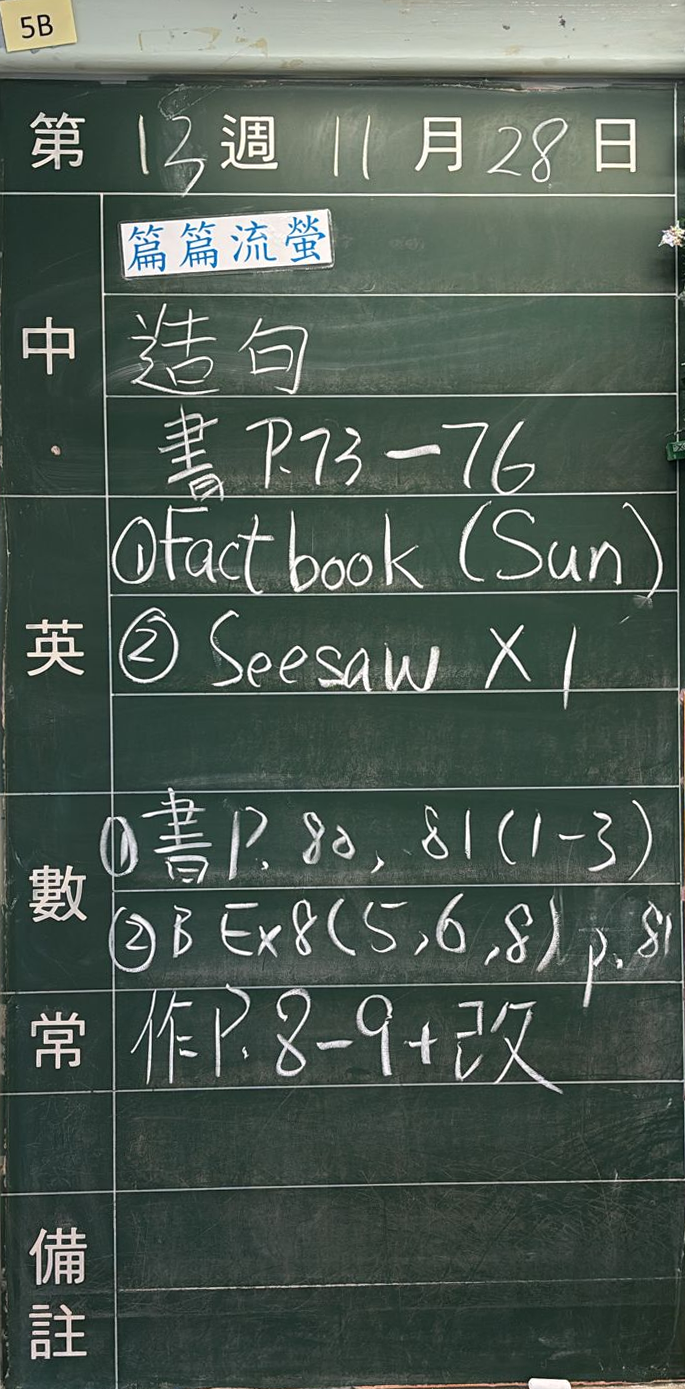 5B
第 13 週 11 月 28 日
篇篇流螢
中 造句
書 P.73-76
①Fact book (Sun)
英 ② Seesaw X 1
①書 P. 80, 81 (1-3)
數 ② B Ex8 (5,6,8) p.81
常 作P.8-9+改
備註